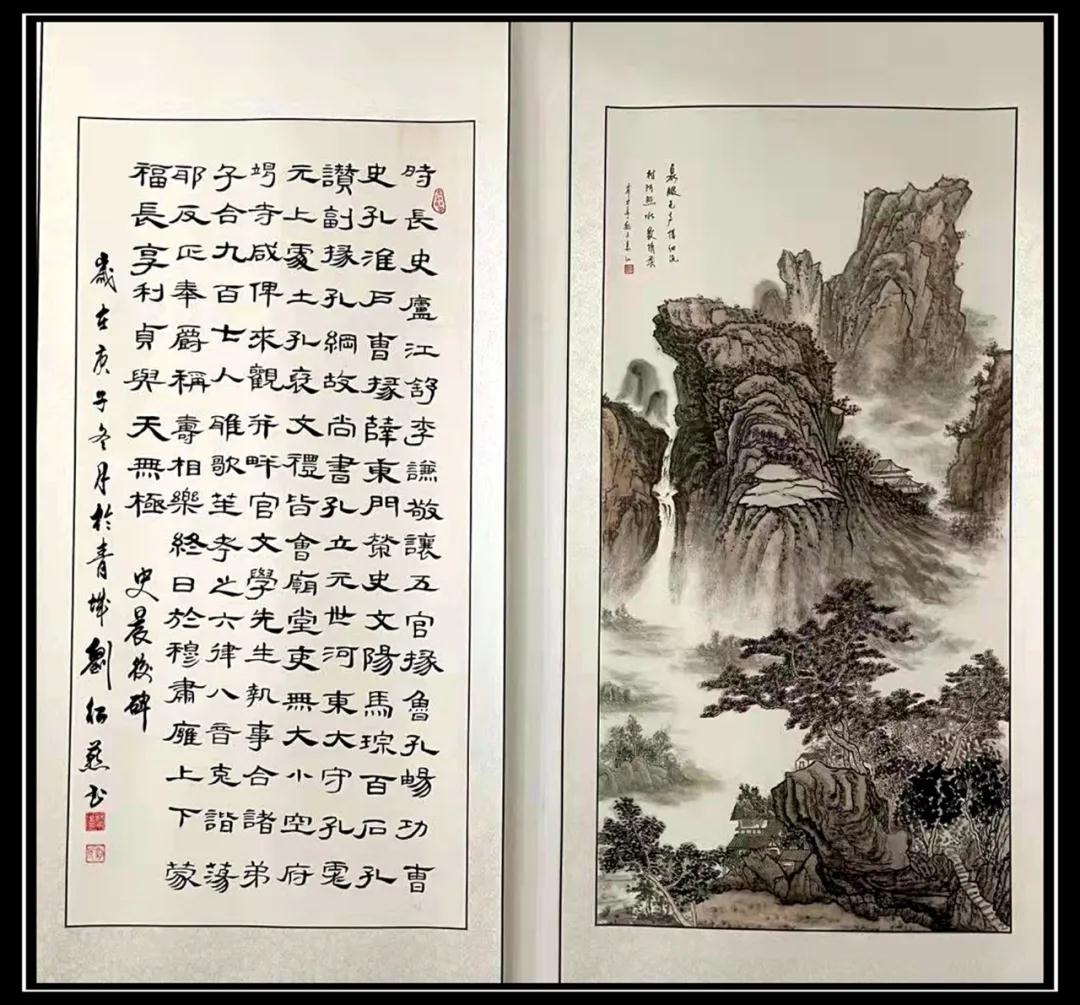 時長史廬江舒李謙敬讓五官掾魯孔暢功曹
史孔淮戶曹掾薛東門榮史文陽馬琮百石孔
讚副掾孔綱故尚書孔立元世河東大守孔彪
元上處土孔裦文禮皆會廟堂吏無大小空府
竭寺咸俾來觀并畔官文學先生執事合諸弟
子合九百七人雅歌笙考之六律八音克諧蕩
耶反正奉爵稱壽相樂終日於穆肅廱上下蒙
福長享利貞與天無極
史晨後碑
歲在庚子冬月於青城劉燕书
泉眼无声惜细流
树阴照水爱晴柔